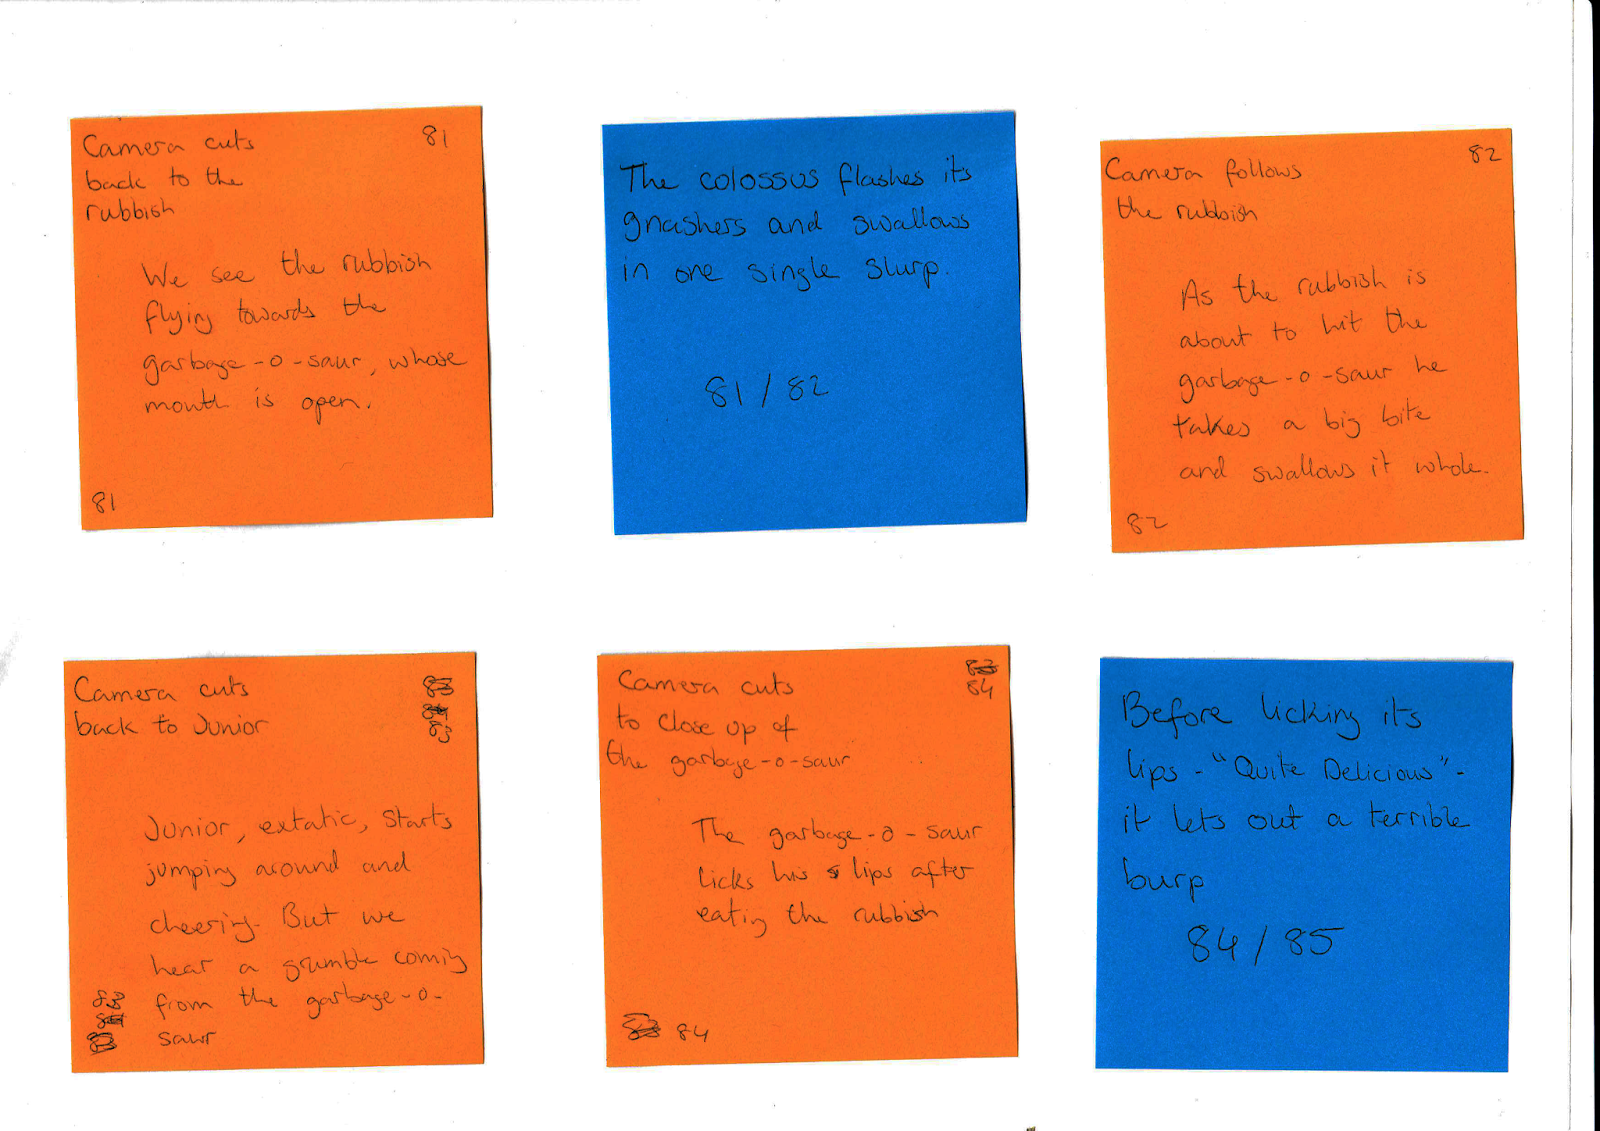 Camera cuts
81
back to the
rubbish
We see the rubbish
flying towards the
garbage-o-saur, whose
mouth is open.
81
The colossus flashes its
gnashers and swallows
in one single slurp.
81/82
Camera follows
82
the rubbish
As the rubbish is
about to hit the
garbage-o-saur he
takes a big bite
and swallows it whole.
82
Camera cuts
back to Junior
Junior, extatic, starts
jumping around and
cheering. But we
hear a grumble coming
from the garbage-o-
saur
Camera cuts
84
to close up of
the garbage-o-saur
The garbage-o-saur
licks his lips after
eating the rubbish
84
Before licking its
lips - "Quite Delicious" -
it lets out a terrible
burp
84/85